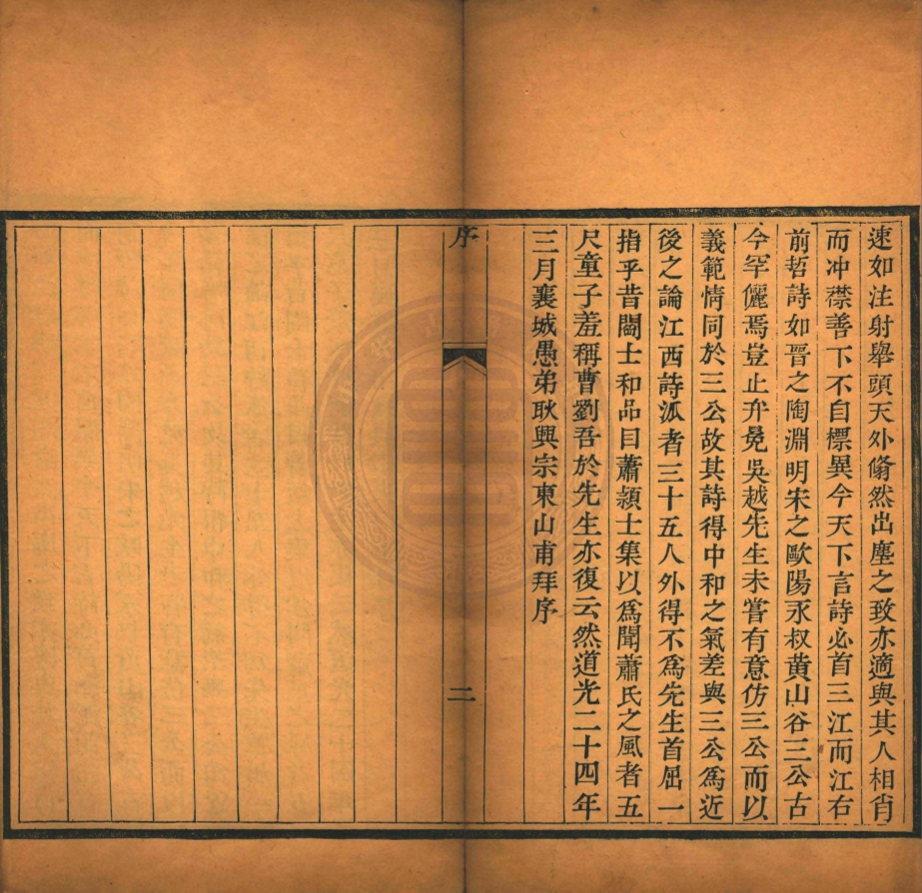 速如注射舉頭天外翛然出塵之致亦適與其人相肖
而冲襟善下不自標異今天下言詩必首三江而江右
前哲詩如晋之陶淵明宋之歐陽永叔黄山谷三公古
今罕儷焉豈止弁冕吳越先生未嘗有意仿三公而以
義範情同於三公故其詩得中和之氣差與三公爲近
後之論江西詩派者三十五人外得不爲先生首屈一
指乎昔閻士和品目蕭頴士集以爲聞蕭氏之風者五
尺童子羞稱曹劉吾於先生亦復云然道光二十四年
三月襄城愚弟耿興宗東山甫拜序
序
二